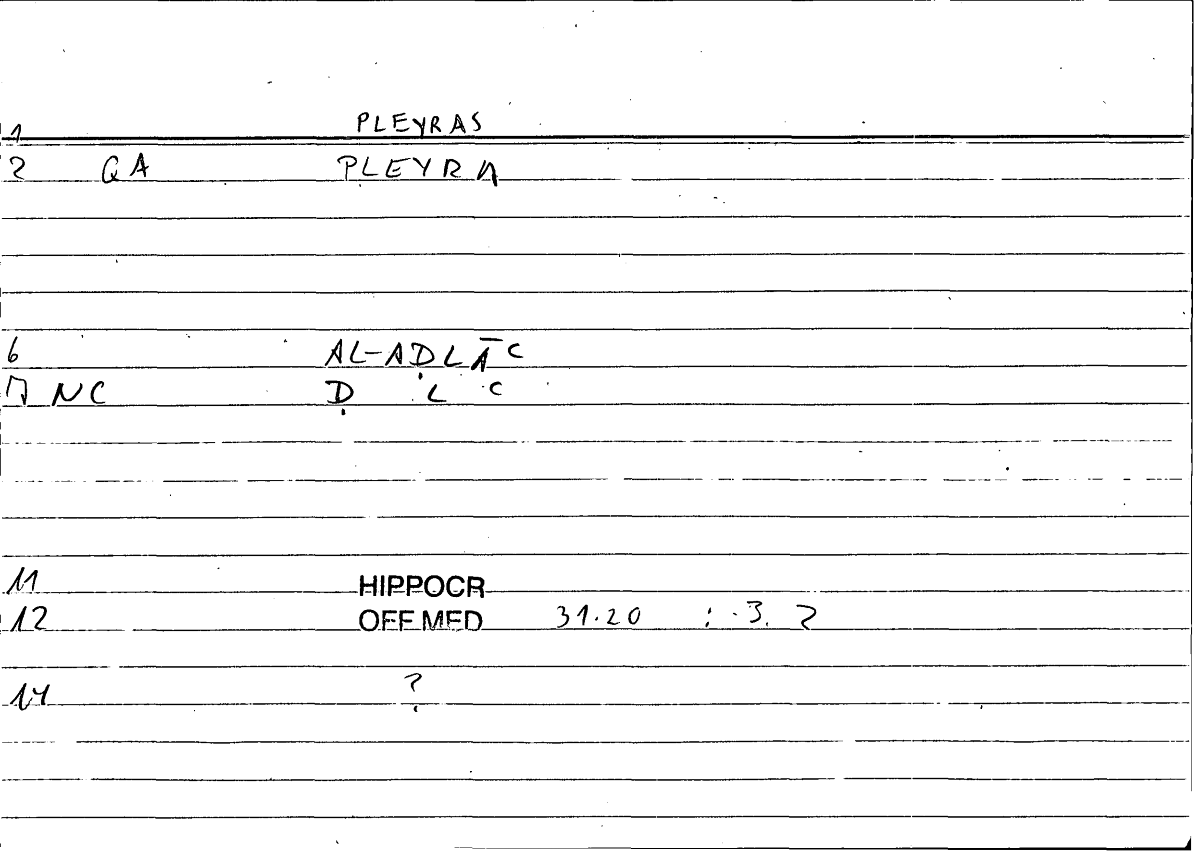 1 PLEYRAS
2 QA PLEYRA
6 AL-AḌLĀC
7 NC Ḍ L C
11 HIPPOCR
12 OFF MED 31.20 : 3. 2
14 ?